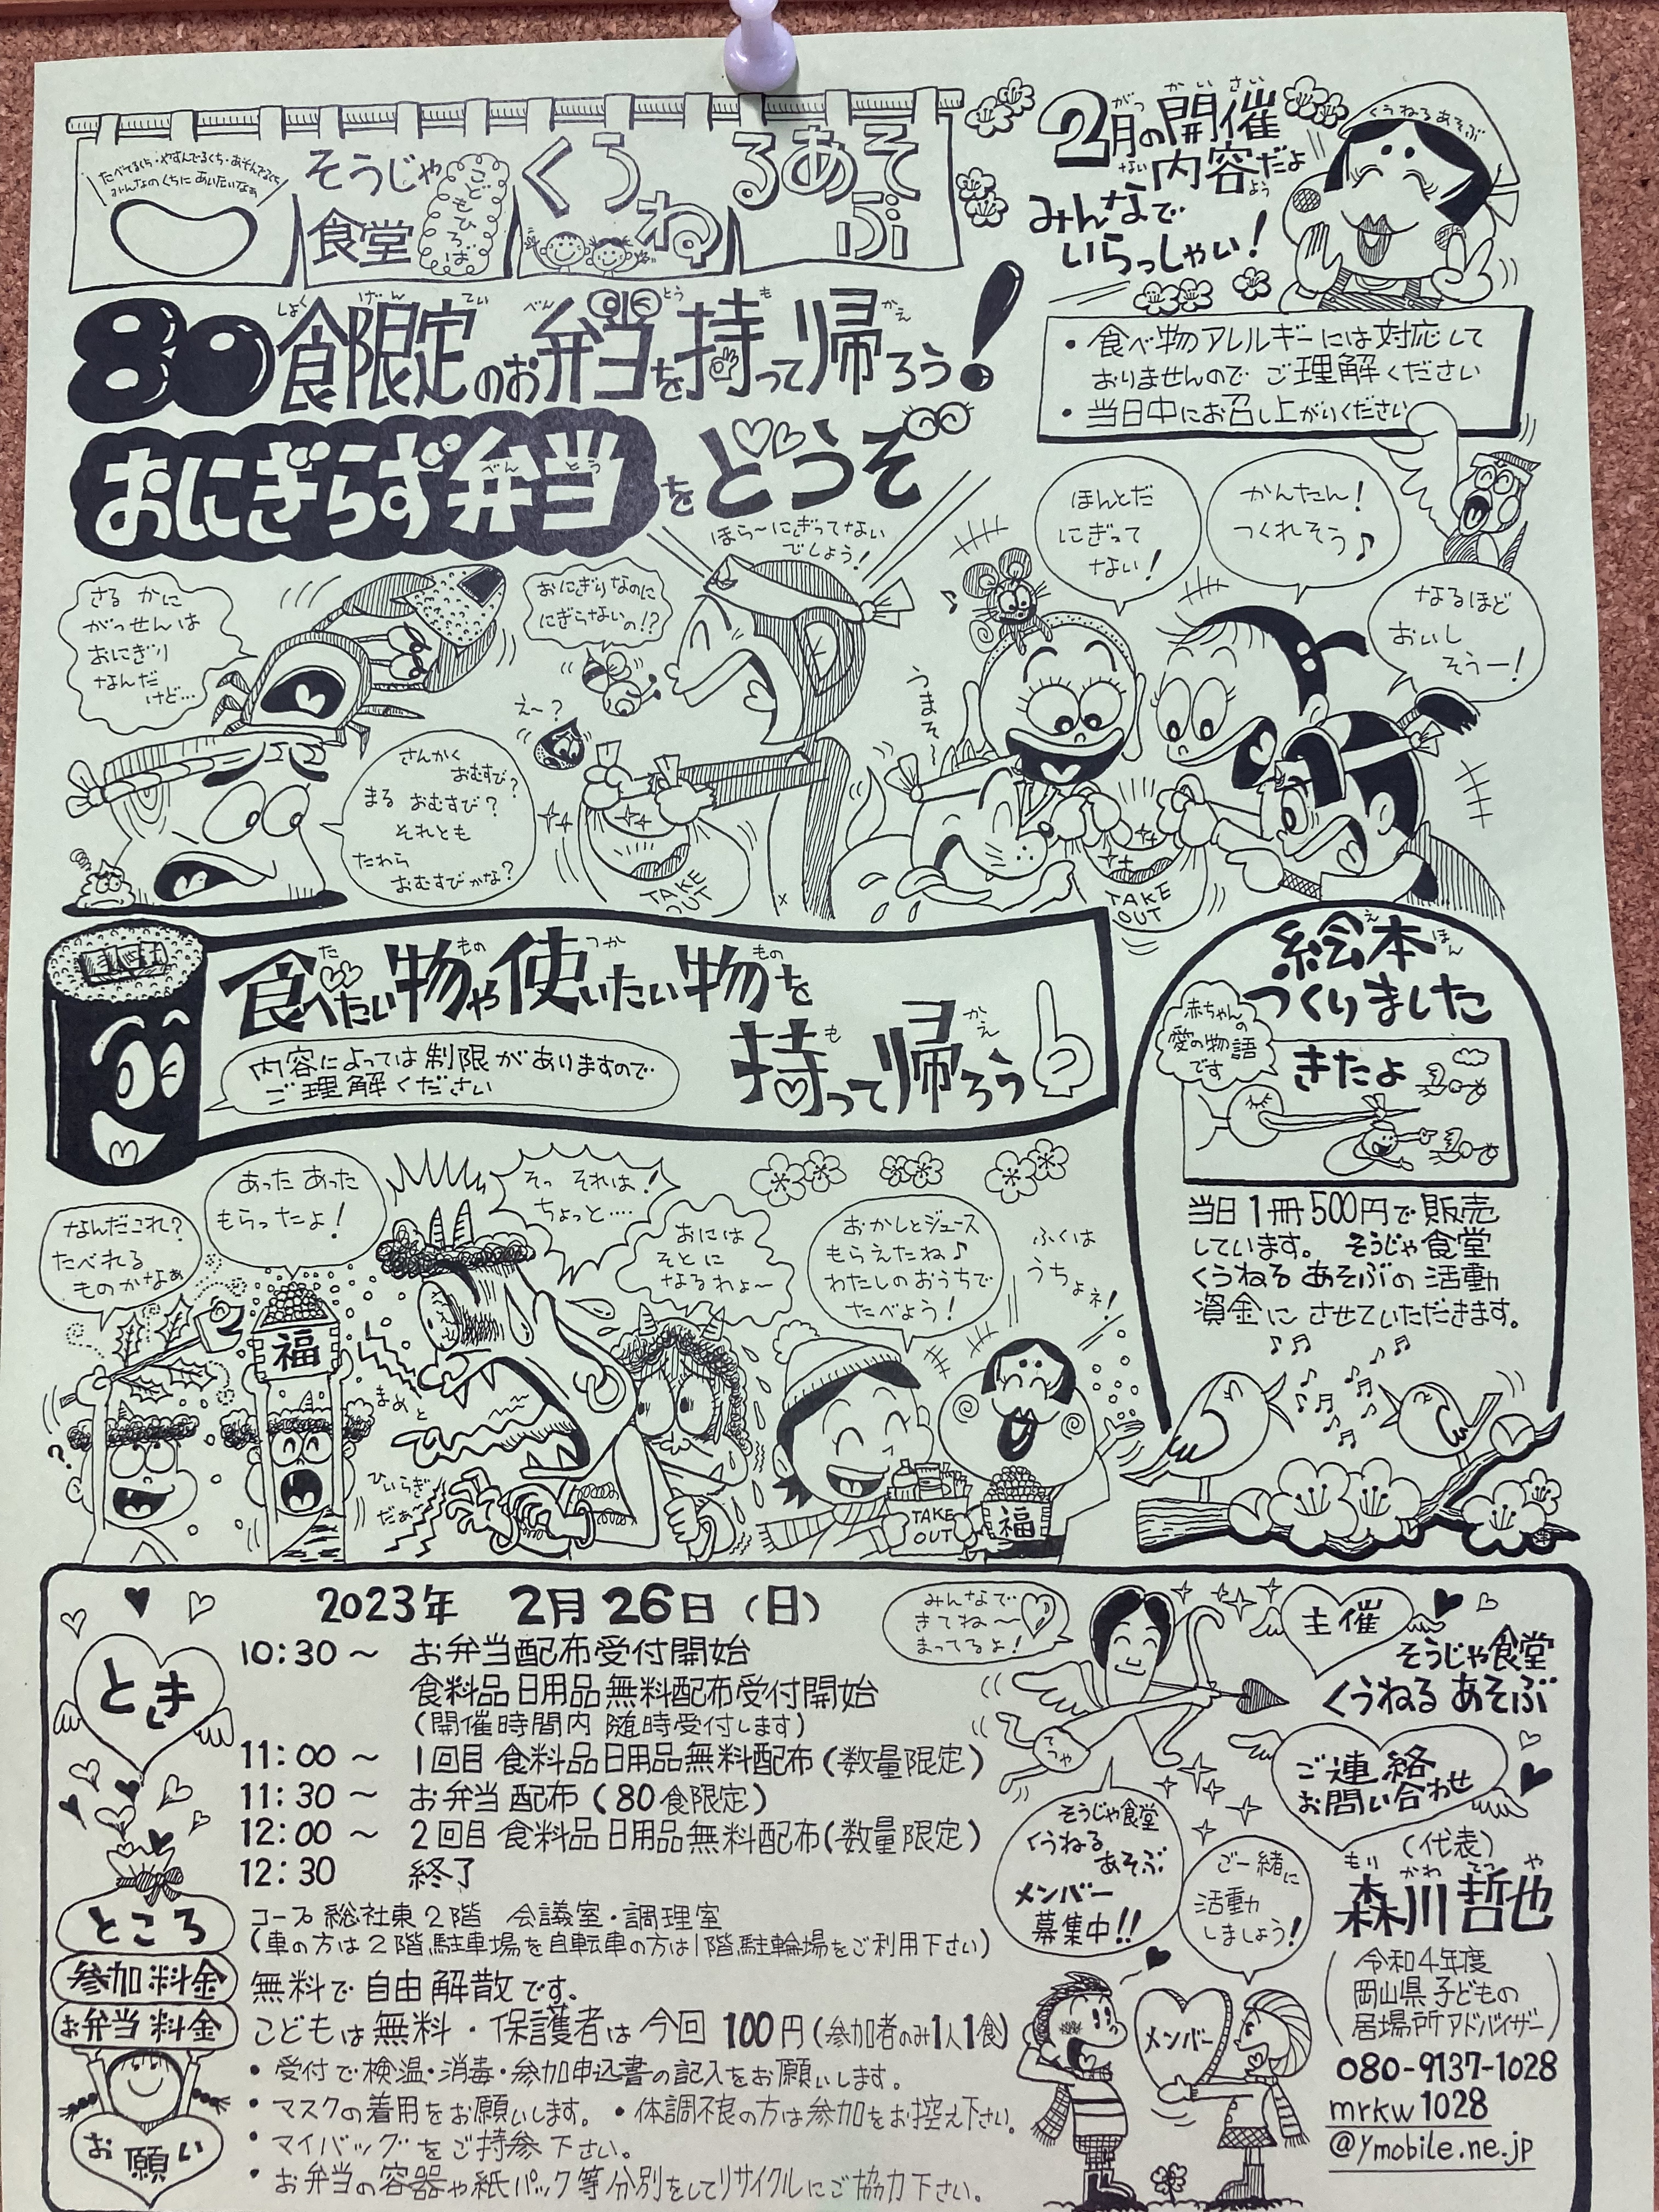 たべてるくち・やすんでるくち・あそんでるくち
みんなのくちに あいたいなぁ
そうじゃ
食堂
こどもひろば
くうねるあそぶ
2月の開催
がつ かいさい
内容だよ
ないよう
みんなで
いらっしゃい!
くうねるあそぶ
80食限定のお弁当を持って帰ろう!
しょく げん てい べん とう も かえ
おにぎらず弁当をどうぞ
べん とう
・食べ物のアレルギーには対応して
おりませんので ご理解ください
・当日中にお召し上がりください
ほら~にぎってない
でしょう!
ほんとだ
にぎって
ない!
かんたん!
つくれそう♪
なるほど
おいし
そうー!
さる かに
がっせんは
おにぎり
なんだ
けど…
おにぎりなのに
にぎらないの!?
え~?
うまそ~
さんかく
おむすび?
まる おむすび?
それとも
たわら
おむすびかな?
TAKE
OUT
TAKE
OUT
食べたい物や使いたい物を
た もの つか もの
持って帰ろう
も かえ
内容によっては制限がありますので
ご理解ください
絵本
え ほん
つくりました
赤ちゃんの
愛の物語
です
きたよ
当日1冊500円で販売
しています。 そうじゃ食堂
くうねる あそぶの 活動
資金に させていただきます。
なんだこれ?
たべれる
ものかなぁ
あった あった
もらったよ!
そっ それは!
ちょっと‥‥
おには
そとに
なるわよ~
おかしとジュース
もらえたね♪
わたしのおうちで
たべよう!
ふくは
うちよネ!
福
まめと
ひいらぎ
だぁ~
TAKE
OUT
福
2023年 2月26日(日)
とき
10:30~ お弁当配布受付開始
食料品日用品無料配布受付開始
(開催時間内 随時受付します)
11:00~ 1回目 食料品日用品無料配布(数量限定)
11:30~ お弁当配布(80食限定)
12:00~ 2回目 食料品日用品無料配布(数量限定)
12:30 終了
ところ
コープ総社東2階 会議室・調理室
(車の方は2階駐車場を自転車の方は1階駐輪場をご利用下さい)
参加料金
無料で自由解散です。
お弁当料金
こどもは無料・保護者は今回100円(参加者のみ1人1食)
お願い
・受付で検温・消毒・参加申込書の記入をお願いします。
・マスクの着用をお願いします。・体調不良の方は参加をお控え下さい。
・マイバッグをご持参下さい。
・お弁当の容器や紙パック等分別をしてリサイクルにご協力下さい。
みんなで
きてね~
まってるよ!
主催
そうじゃ食堂
くうねる あそぶ
ご連絡
お問い合わせ
(代表)
もり かわ てつ や
森川哲也
(令和4年度
岡山県子どもの
居場所アドバイザー)
080-9137-1028
mrkw1028
@ymobile.ne.jp
そうじゃ食堂
くうねる
あそぶ
メンバー
募集中!!
ご一緒に
活動
しましょう!
メンバー